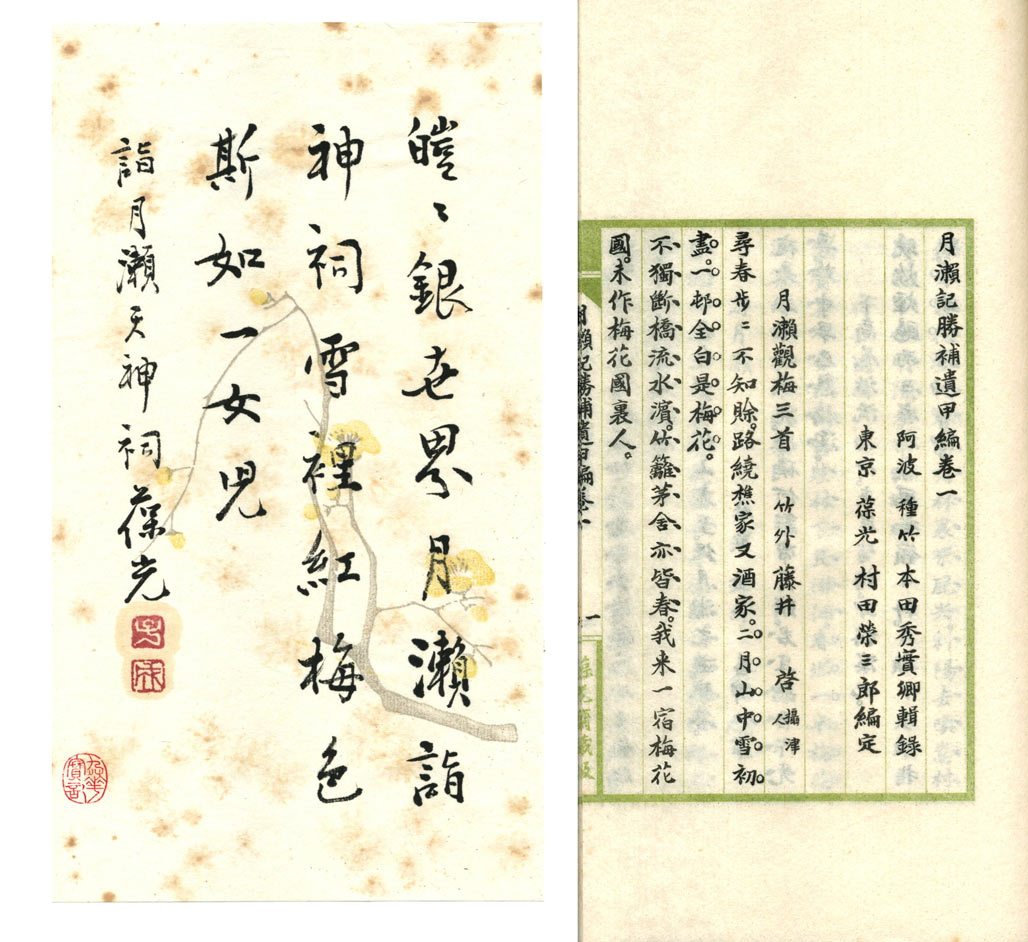 皚〻銀世界月瀬詣
神祠雪裡紅梅色
斯如一女児
詣月瀬天神祠 葆光
月瀨記勝補遺甲編卷一
阿波 種竹本田秀實卿輯錄
東京 葆光村田榮三郎編定
月瀨觀梅三首 竹外藤井 啓 攝津人
尋春步〻不知賒。路繞樵家又酒家。二月山中雪初
盡。一邨全白是梅花。
不獨斷橋流水濱。竹籬茅舍亦皆春。我来一宿梅花
國。未作梅花國裏人。
月瀨記勝補遺甲編卷一
一